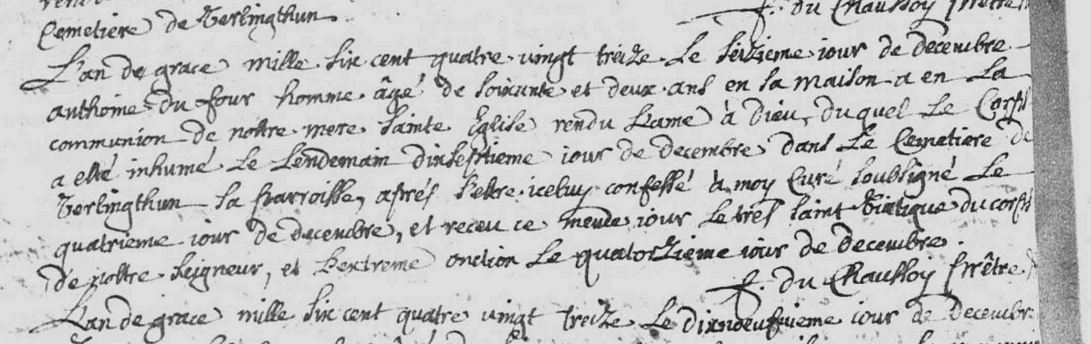 Cemetiere de Terlingthun
f. du Chaussoy prêtre
L'an de grace mille six cent quatre vingt treize le seizieme iour de decembre
anthoine du four homme âgé de soixante et deux ans en sa maison a en la
communion de nostre mere sainte Eglise rendu l'ame à dieu, duquel le Corps
a esté inhumé le lendemain dixseptieme iour de decembre dans le Cemetiere de
Terlingthun sa parroisse, aprés s'estre iceluy confessé à moy Curé soubsigné le
quatrieme iour de decembre, et receu ce meme iour le tres saint Viatique du corps
de nostre seigneur, et l'extreme onction le quatorzieme iour de decembre.
f. du Chaussoy prêtre
L'an de grace mille six cent quatre vingt treize le dixneufvieme iour de decembre